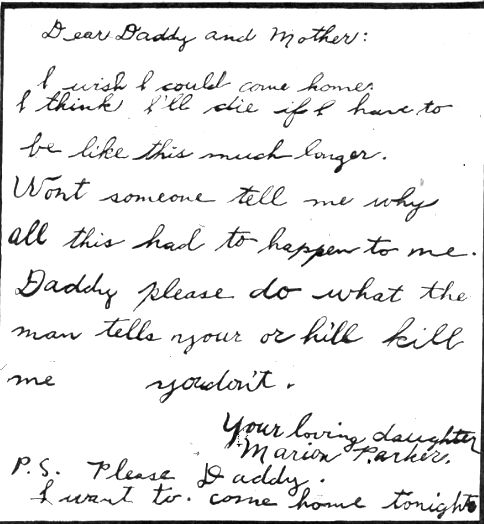 Dear Daddy and Mother:
I wish I could come home.
I think I'll die if I have to
be like this much longer.
Wont someone tell me why
all this had to happen to me.
Daddy please do what the
man tells your or hill kill
me youdon't.
Your loving daughter
Marion Parker.
P.S. Please Daddy.
I want to come home tonight.